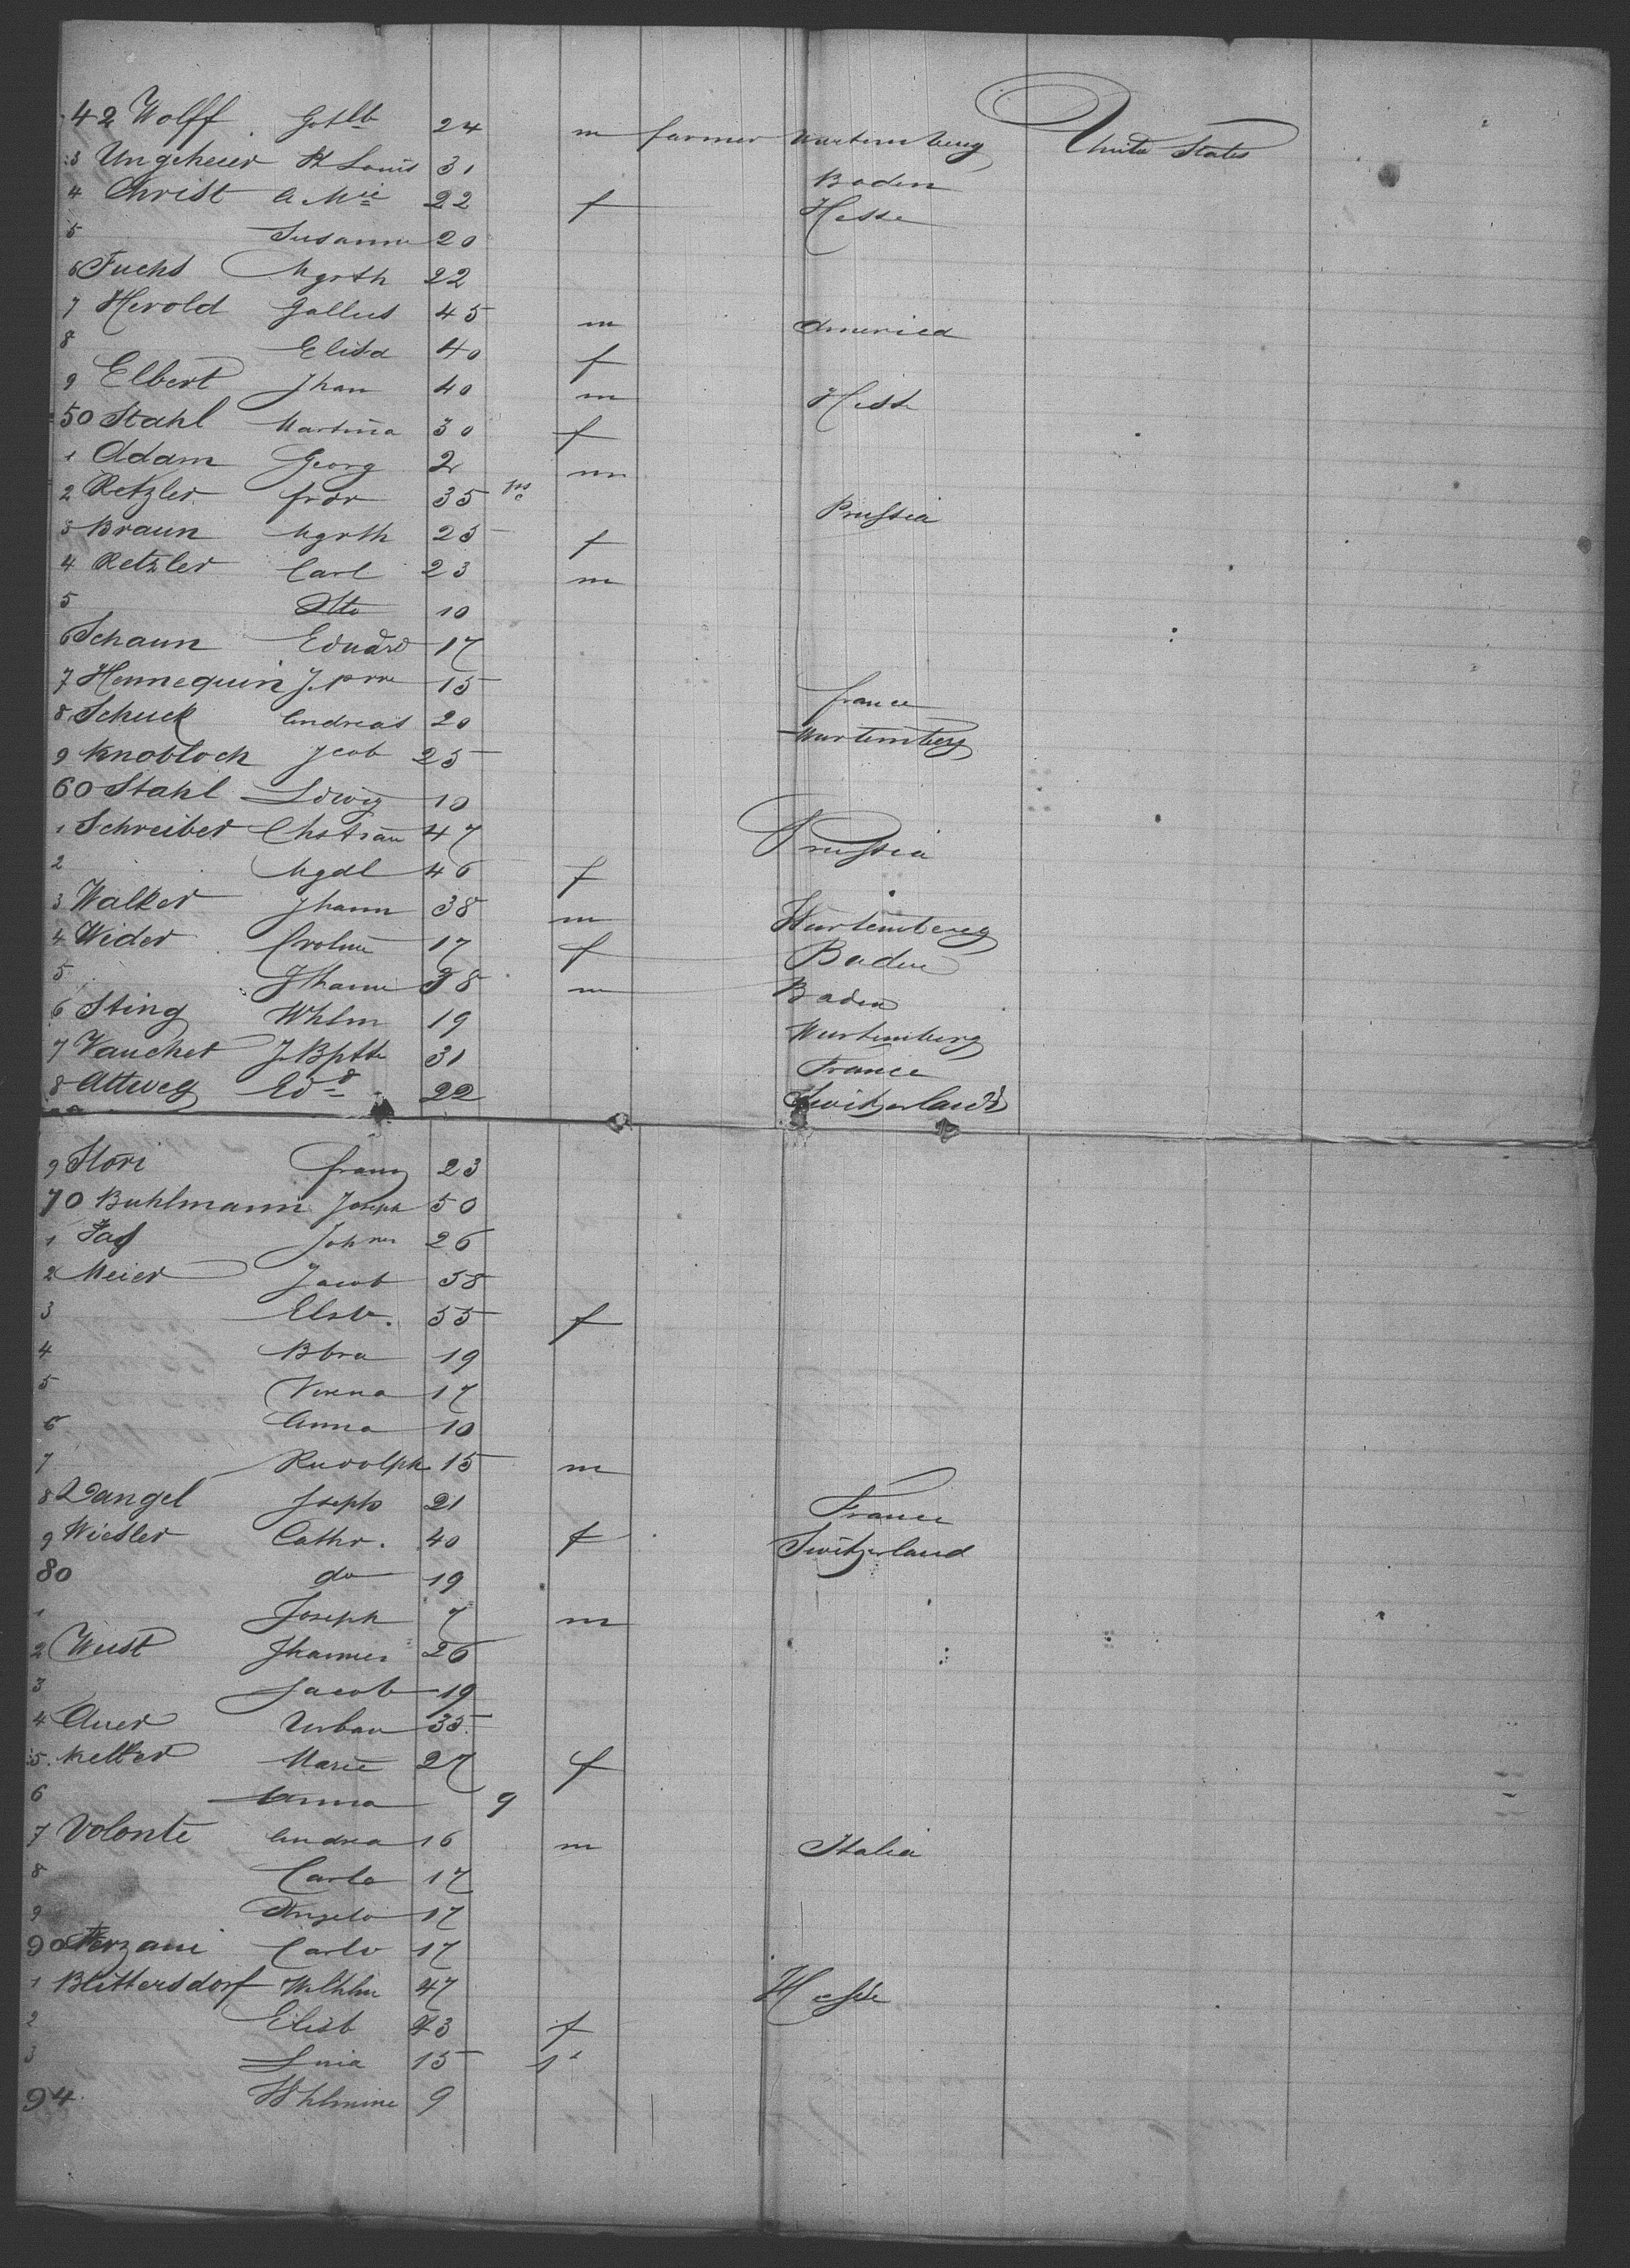 42 Wolff Gottlb 24 m farmer Wurtemberg United States
3 Ungeheuer Ph Louis 31 Baden
4 Christ A. Mie 22 f Hesse
5 Susanna 20
6 Fuchs Mgrth 22
7 Herold Gallus 45 m America
8 Elisa 40 f
9 Elbert Jhan 40 m Hesse
50 Stahl Martina 30 f
1 Adam Georg 2 m
2 Retzler frdr 35 Prussia
3 Braun Mgrth 23 f
4 Retzler Carl 23 m
5 Otto 10
6 Schaun Eduard 17
7 Hennequin J. prre 15 france
8 Schuck Andreas 20 Wurtemberg
9 Knobloch Jcob 25
60 Stahl Ldwig 10
1 Schreiber Chstian 47 Prussia
2 Mgdl 46 f
3 Walker Jhann 38 m Wurtemberg
4 Wider Crolin 17 f Baden
5 Jhann 38 m Baden
6 Sting Whlm 19 Wurtemberg
7 Vaucher J. Bptte 31 France
8 Attweg Edd 22 Switzerland
9 Stori franz 23
70 Buhlmann Joseph 50
1 26
2 Meier Jacob 58
3 Elsb. 55 f
4 Bbra 19
5 Verena 17
6 Anna 10
7 Rudolph 15 m
8 Dangel Jseph 21 France
9 Wiesler Cathr. 40 f Switzerland
80 do 19
1 Joseph 7 m
2 Wust Jhannes 26
3 Jacob 19
4 Auer Urban 35
5 Keller Marie 27 f
6 Anna 9
7 Volonte Andrea 16 m Italia
8 Carlo 17
9 Angelo 17
90 Carlo 17
1 Blittersdorf Wlhlm 47 Hesse
2 Elisb 43 f
3 15
94 Whlmine 9